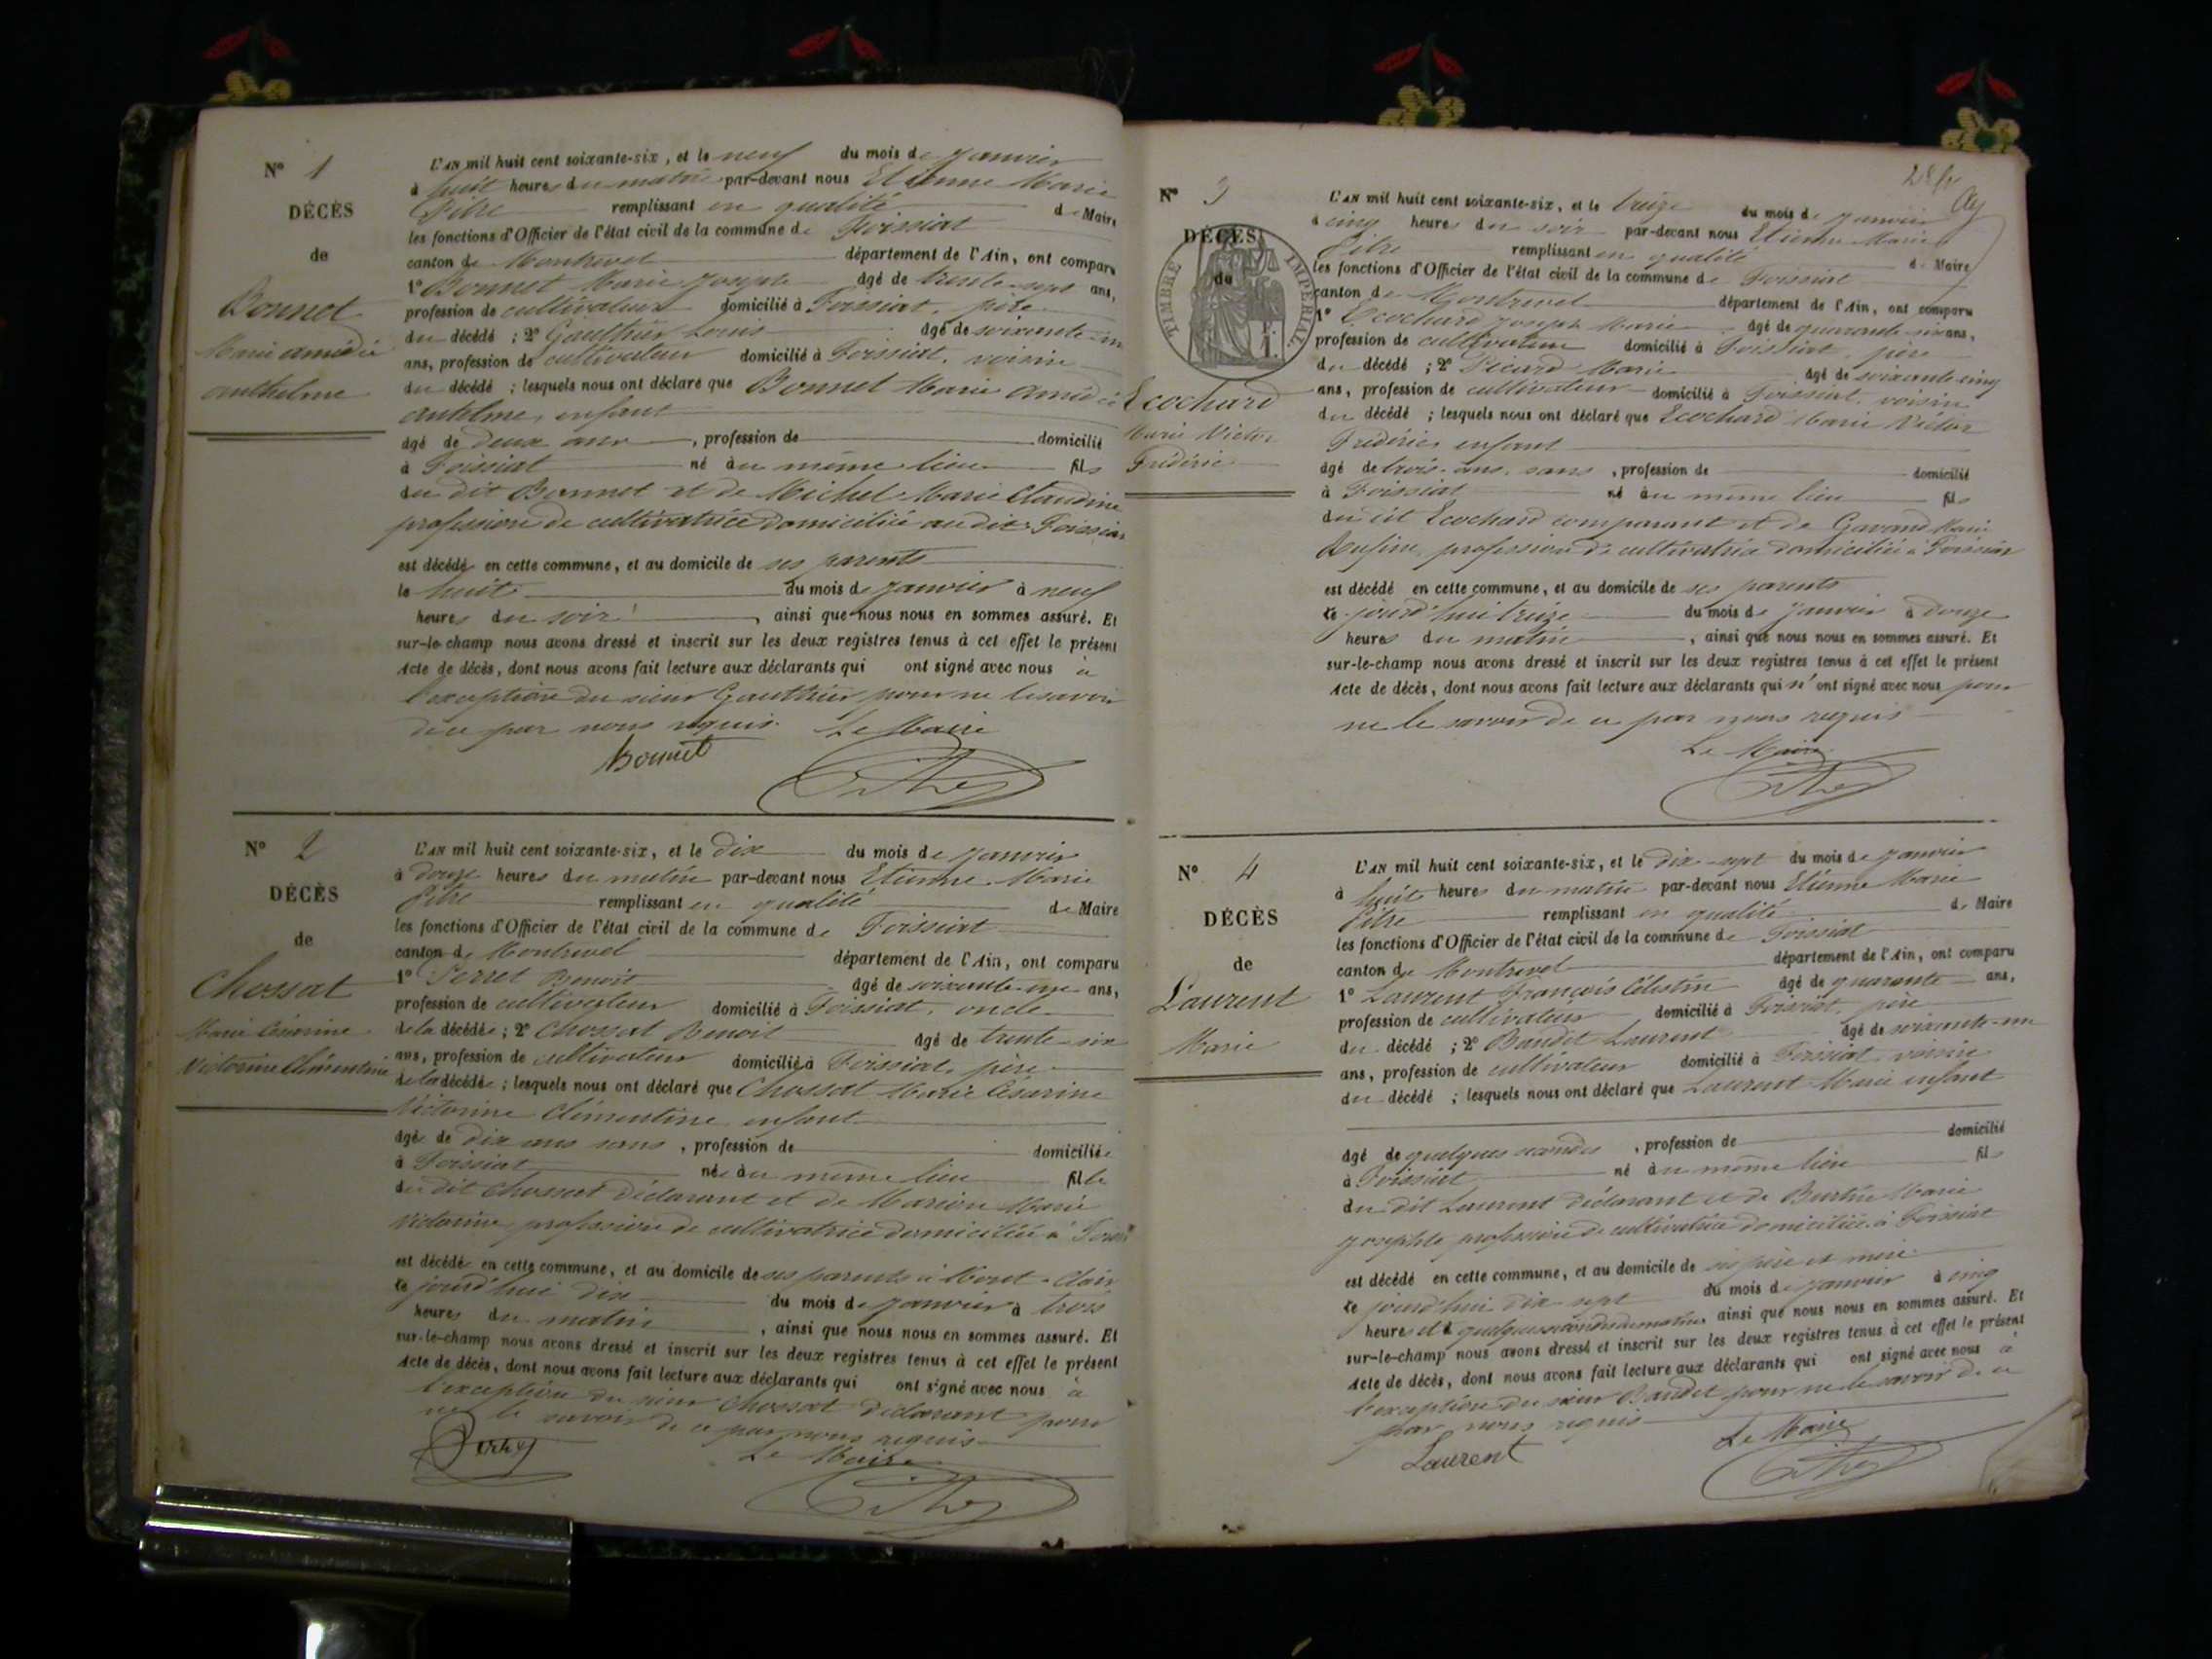 N° 1
DÉCÈS
de
Bonnet
Marie amédée
anthelme
L'AN mil huit cent soixante-six, et le neuf du mois de janvier
à huit heures du matin par-devant nous Etienne Marie
Pitre remplissant en qualité de Maire
les fonctions d'Officier de l'état civil de la commune de Foissiat
canton de Montrevel département de l'Ain, ont comparu
1° Bonnet Marie Joseph âgé de trente-sept ans,
profession de cultivateur domicilié à Foissiat, père
du décédé ; 2° Gauthier Louis âgé de soixante-un
ans, profession de cultivateur domicilié à Foissiat, voisin
du décédé ; lesquels nous ont déclaré que Bonnet Marie amédée
antelme, enfant
âgé de deux ans , profession de domicilié
à Foissiat né au même lieu fils
du dit Bonnet et de Michel Marie Claudine
profession de cultivatrice domiciliée au dit Foissiat
est décédé en cette commune, et au domicile de ses parents
le huit du mois de janvier à neuf
heures du soir , ainsi que nous nous en sommes assuré. Et
sur-le-champ nous avons dressé et inscrit sur les deux registres tenus à cet effet le présent
Acte de décès, dont nous avons fait lecture aux déclarants qui ont signé avec nous à
l'exception du sieur Gauthier pour ne le savoir
de ce par nous requis. Le Maire
Bonnet Pitre
N° 2
DÉCÈS
de
Chossat
Marie Césarine
Victorine Clémentine
L'AN mil huit cent soixante-six, et le dix du mois de janvier
à douze heures du matin par-devant nous Etienne Marie
Pitre remplissant en qualité de Maire
les fonctions d'Officier de l'état civil de la commune de Foissiat
canton de Montrevel département de l'Ain, ont comparu
1° Perret Benoit âgé de soixante-une ans,
profession de cultivateur domicilié à Foissiat, oncle
de la décédée ; 2° Chossat Benoit âgé de trente-six
ans, profession de cultivateur domicilié à Foissiat, père
de la décédée ; lesquels nous ont déclaré que Chossat Marie Césarine
Victorine Clémentine enfant
âgée de dix ans sans , profession de domiciliée
à Foissiat née au même lieu fille
du dit Chossat déclarant et de Marion Marie
Victorine, profession de cultivatrice domiciliée à Foissiat
est décédée en cette commune, et au domicile de ses parents à
ce jourd'hui dix du mois de janvier à trois
heures du matin , ainsi que nous nous en sommes assuré. Et
sur-le-champ nous avons dressé et inscrit sur les deux registres tenus à cet effet le présent
Acte de décès, dont nous avons fait lecture aux déclarants qui ont signé avec nous à
l'exception du sieur Chossat déclarant pour
ne le savoir de ce par nous requis
Le Maire
Pitre
N° 3
DÉCÈS
de
TIMBRE IMPÉRIAL
Ecochard
Marie Victor
Frédéric
L'AN mil huit cent soixante-six, et le treize du mois de janvier
à cinq heures du soir par-devant nous Etienne Marie
Pitre remplissant en qualité de Maire
les fonctions d'Officier de l'état civil de la commune de Foissiat
canton de Montrevel département de l'Ain, ont comparu
1° Ecochard Joseph Marie âgé de quarante-six ans,
profession de cultivateur domicilié à Foissiat, père
du décédé ; 2° Picard Marie âgé de soixante-cinq
ans, profession de cultivateur domicilié à Foissiat, voisin
du décédé ; lesquels nous ont déclaré que Ecochard Marie Victor
Frédéric enfant
âgé de trois ans, sans , profession de domicilié
à Foissiat né au même lieu fils
du dit Ecochard comparant et de Gavand Marie
Rufine, profession de cultivatrice domiciliée à Foissiat
est décédé en cette commune, et au domicile de ses parents
ce jourd'hui treize du mois de janvier à douze
heures du matin , ainsi que nous nous en sommes assuré. Et
sur-le-champ nous avons dressé et inscrit sur les deux registres tenus à cet effet le présent
Acte de décès, dont nous avons fait lecture aux déclarants qui n'ont signé avec nous pour
ne le savoir de ce par nous requis
Le Maire
Pitre
N° 4
DÉCÈS
de
Laurent
Marie
L'AN mil huit cent soixante-six, et le dix-sept du mois de janvier
à huit heures du matin par-devant nous Etienne Marie
Pitre remplissant en qualité de Maire
les fonctions d'Officier de l'état civil de la commune de Foissiat
canton de Montrevel département de l'Ain, ont comparu
1° Laurent François Célestin âgé de quarante ans,
profession de cultivateur domicilié à Foissiat, père
du décédé ; 2° Baudet Laurent âgé de soixante-un
ans, profession de cultivateur domicilié à Foissiat voisin
du décédé ; lesquels nous ont déclaré que Laurent Marie enfant
âgé de quelques secondes , profession de domicilié
à Foissiat né au même lieu fils
du dit Laurent déclarant et de Burtin Marie
Josephte profession de cultivatrice domiciliée à Foissiat
est décédé en cette commune, et au domicile de ses père et mère
ce jourd'hui dix-sept du mois de janvier à cinq
heures et quelques secondes du matin, ainsi que nous nous en sommes assuré. Et
sur-le-champ nous avons dressé et inscrit sur les deux registres tenus à cet effet le présent
Acte de décès, dont nous avons fait lecture aux déclarants qui ont signé avec nous à
l'exception du sieur Baudet pour ne le savoir de ce
par nous requis Le Maire
Laurent Pitre